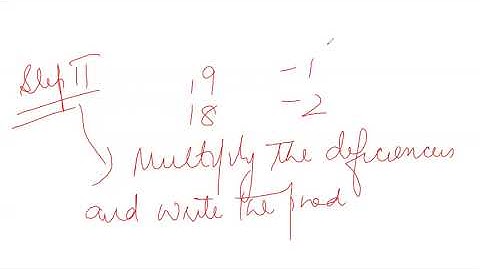 Step II
19 -1
18 -2
Multiply the deficiences
and write the prod